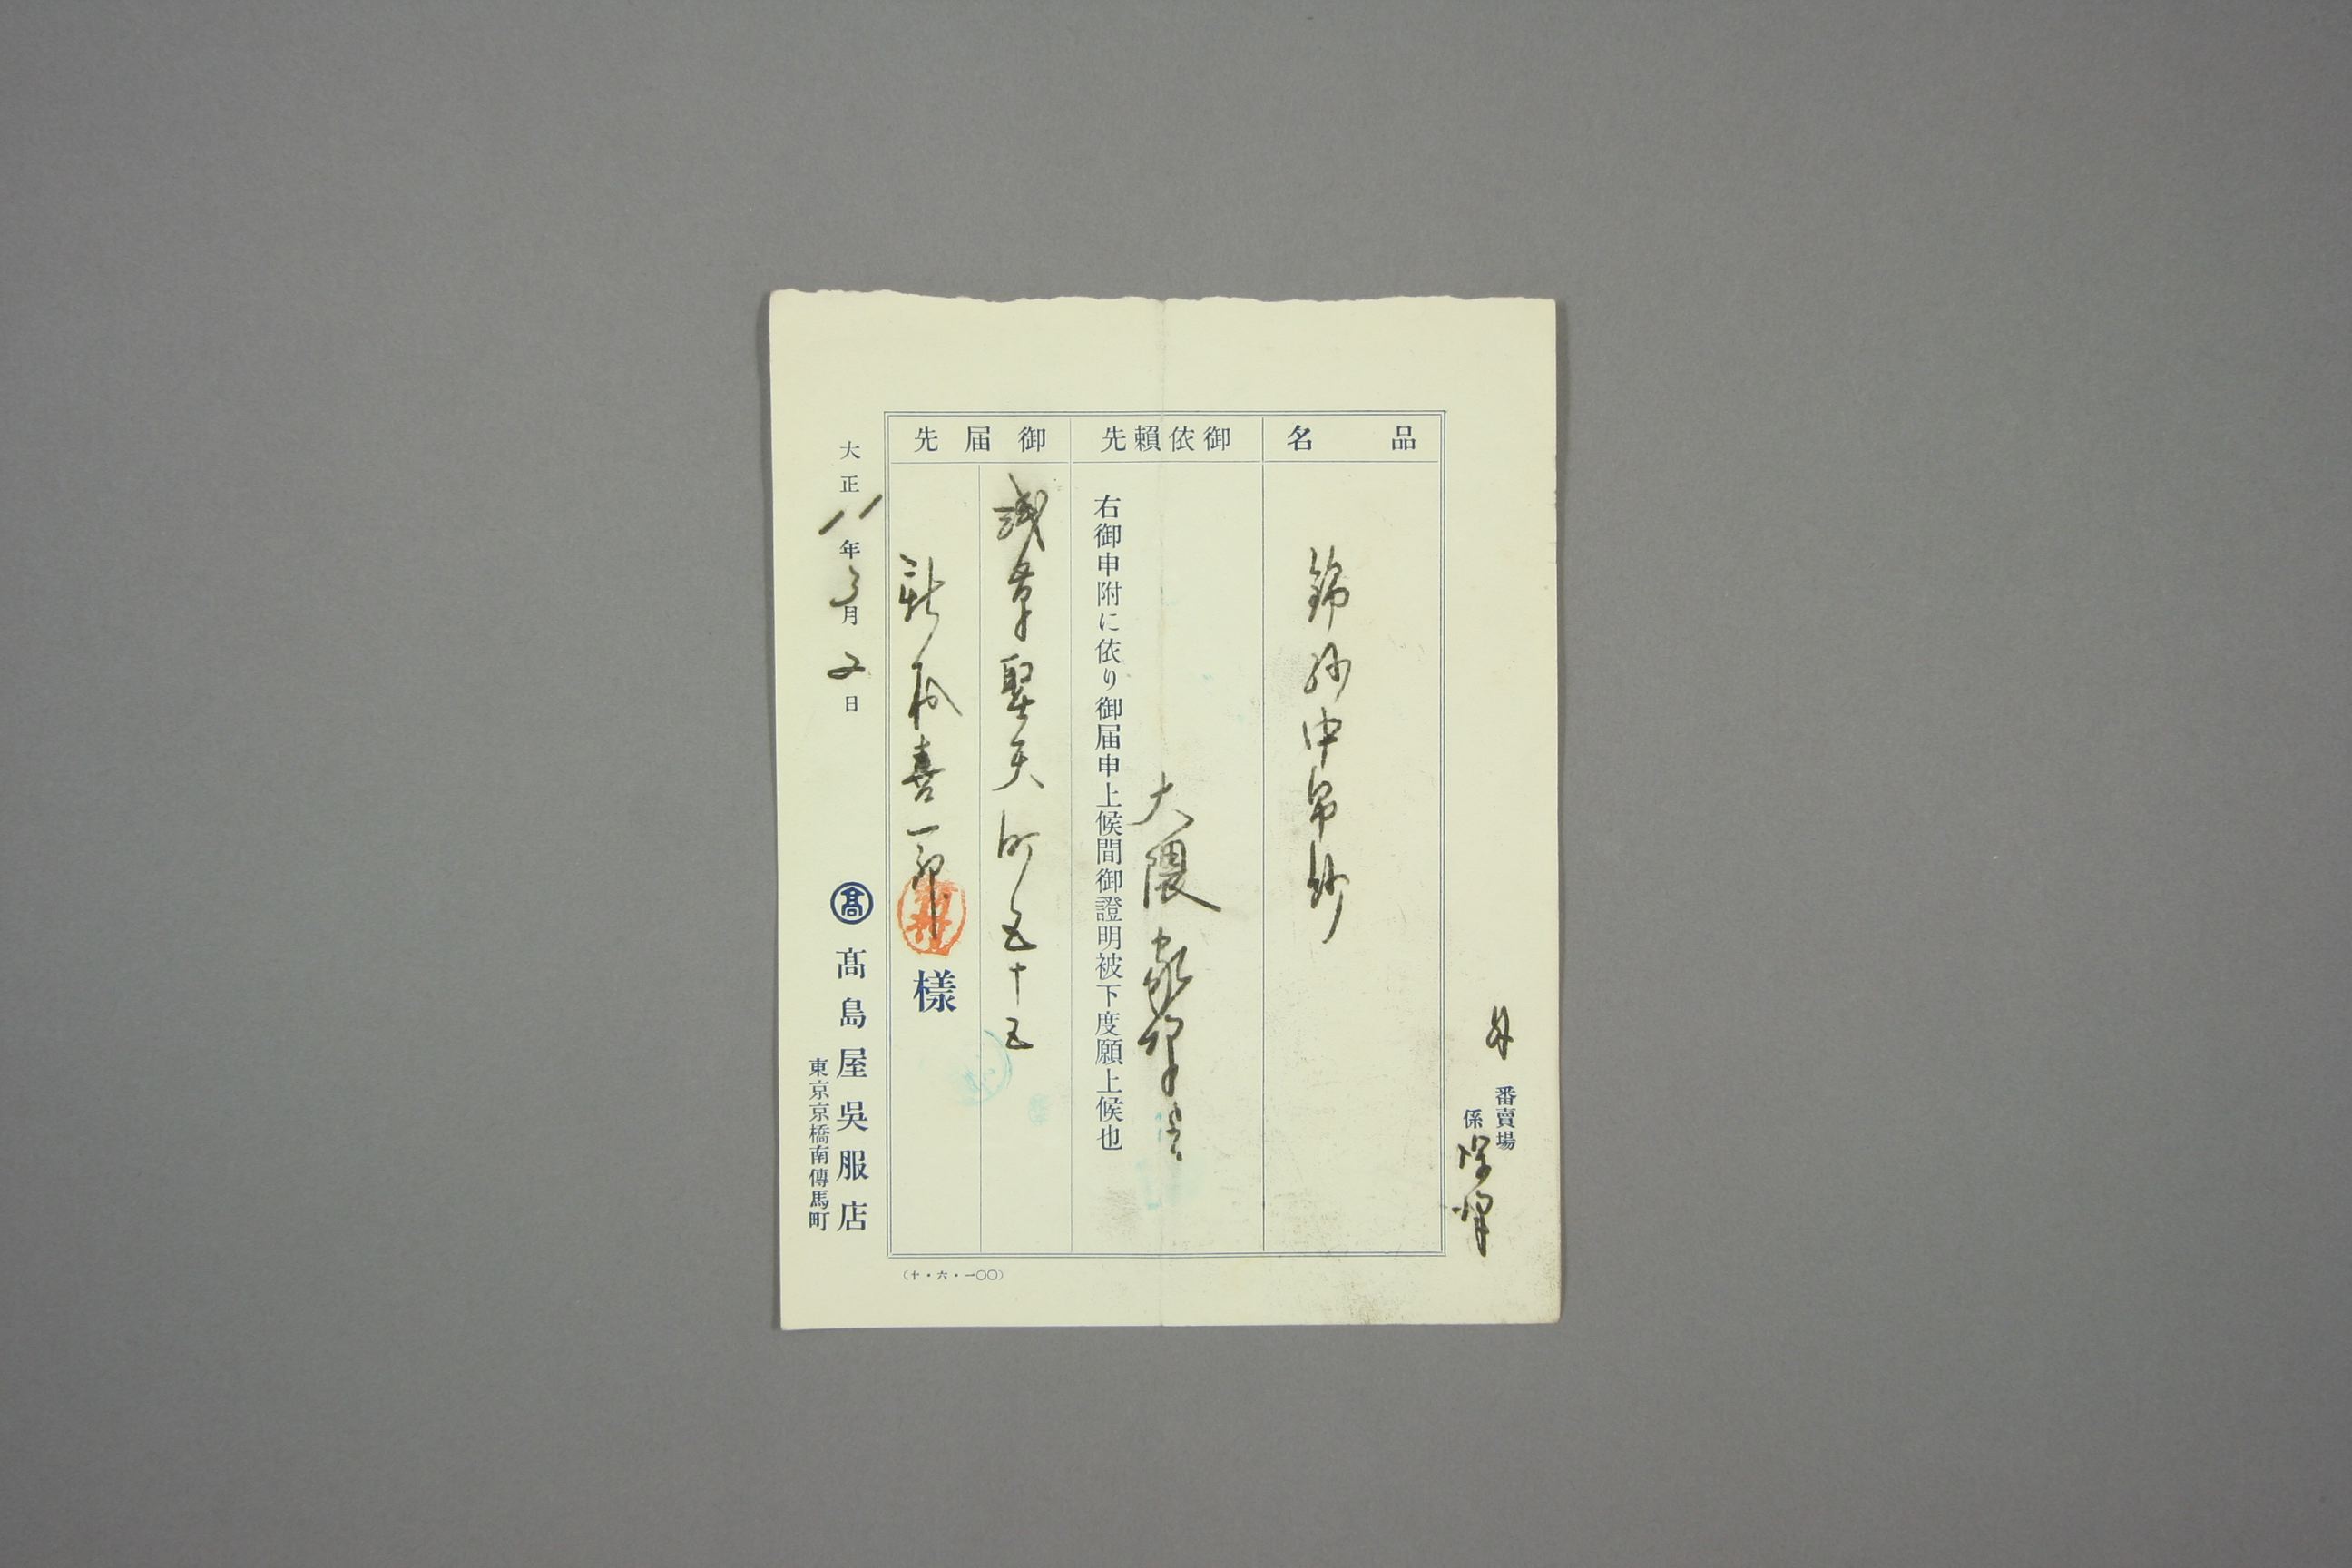 外番賣場
係
品名
錦紗中帛紗
御依賴先
大隈家
右御申附に依り御届申上候間御證明被下度願上候也
御届先
淺草聖天町五十五
喜一郎様
大正八年3月又日
髙
髙島屋吳服店
東京京橋南傳馬町
(十・六・一〇〇)